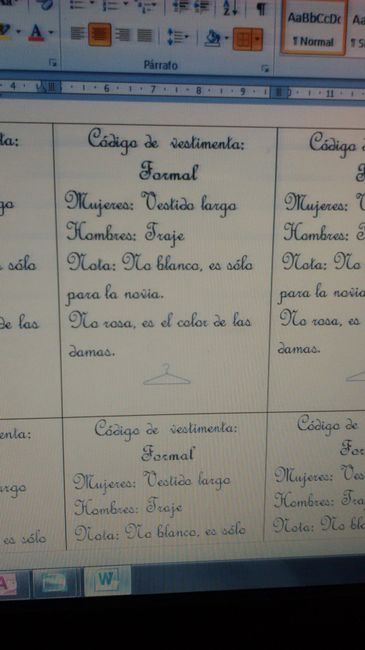 AaBbCcDc
¶ Normal
Párrafo
4 5 6 7 8 9 11
ta: Código de vestimenta: Código
Formal
go Mujeres: Vestido largo Mujeres:
Hombres: Traje Hombres:
sólo Nota: No blanco, es sólo Nota: No
para la novia. para la novia
de las No rosa, es el color de las No rosa, es
damas. damas.
enta: Código de vestimenta: Código de
Formal For
argo Mujeres: Vestido largo Mujeres: Ves
Hombres: Traje Hombres: Tra
es sólo Nota: No blanco, es sólo Nota: No bla
W